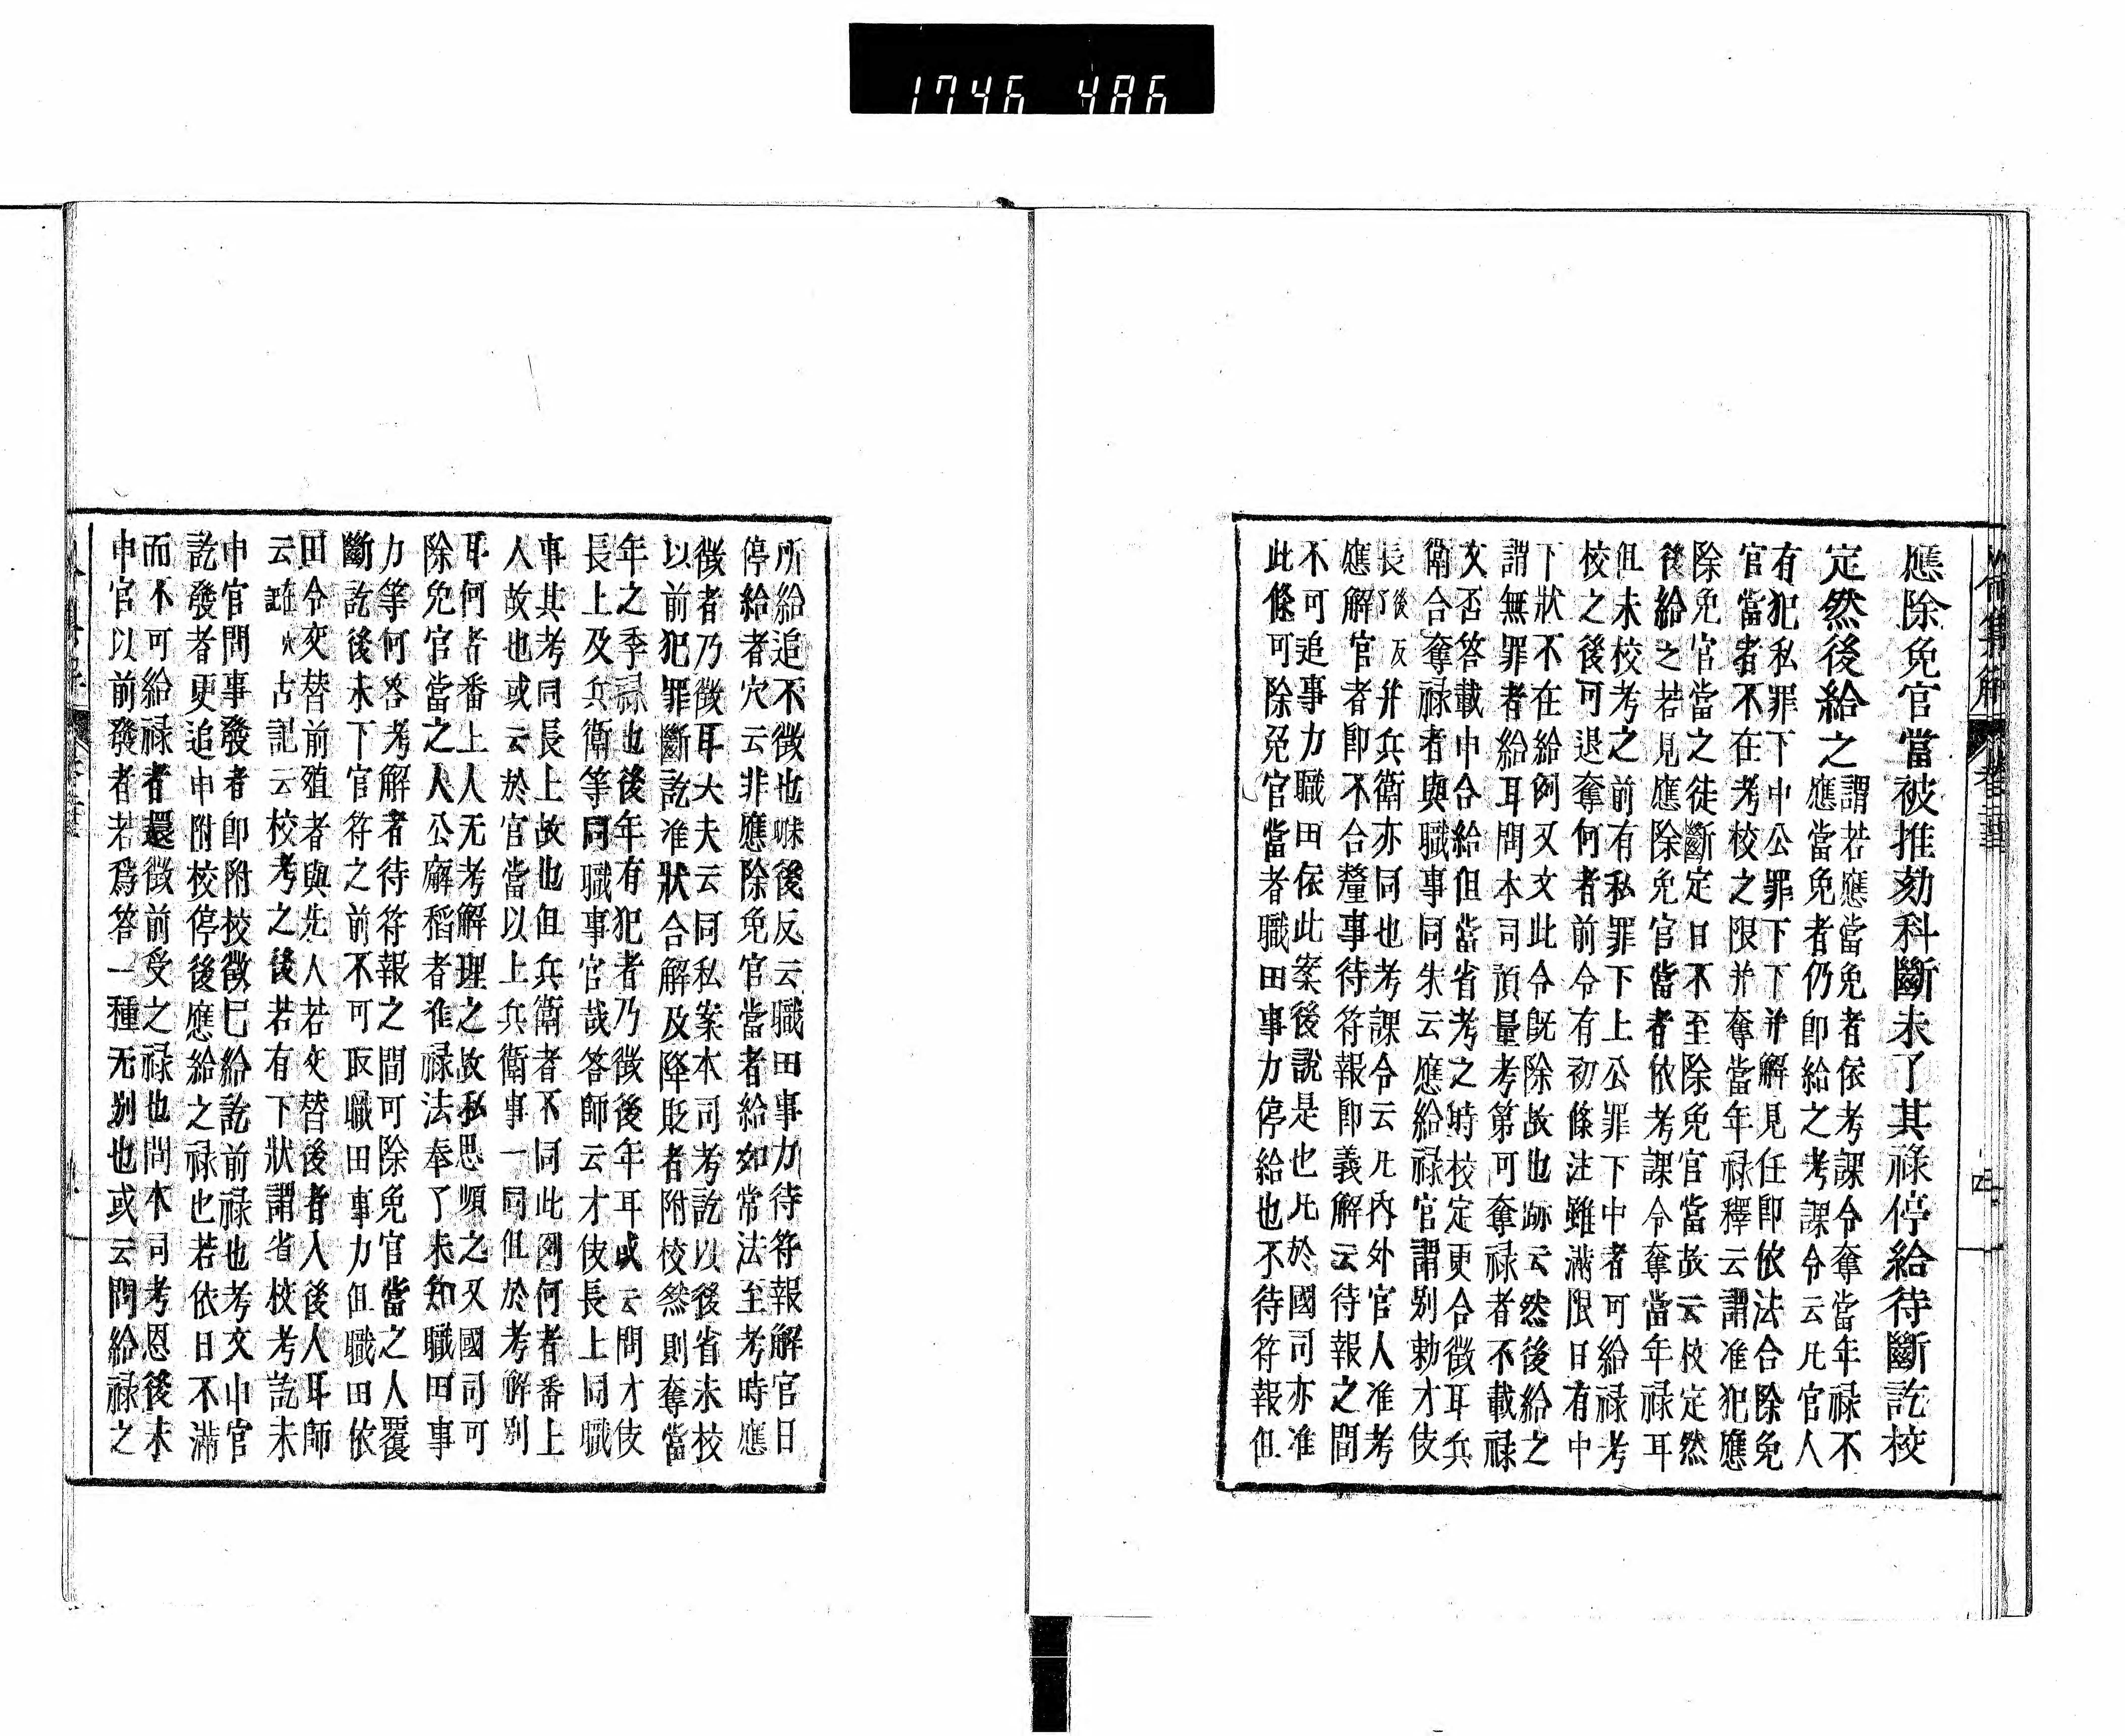 1746 486
應除免官當被推劾科斷未了其祿停給待斷訖校
定然後給之
謂若應當免者依考課令奪當年禄不
應當免者仍即給之考課令云凡官人
有犯私罪下中公罪下下并解見任即依法合除免
官當者不在考校之限并奪當年禄釋云謂准犯應
除免官當之徒斷定日不至除免官當故云校定然
後給之若見應除免官當者依考課令奪當年禄耳
但未校考之前有私罪下上公罪下中者可給禄考
校之後可退奪何者前令有初條注雖滿限日有中
下狀不在給例又文此令既除故也跡云然後給之
謂無罪者給耳問本司預量考第可奪禄者不載禄
文否答載中合給但當省考之時校定更合徴耳兵
衛合奪禄者與職事同朱云應給禄官謂别勅才伎
長了後反并兵衛亦同也考課令云凡内外官人准考
應解官者即不合釐事待符報即義解云待報之間
不可追事力職田依此案後說是也凡於國司亦准
此條可除免官當者職田事力停給也不待符報但
所給追不徴也味後反云職田事力待符報解官日
停給者穴云非應除免官當者給如常法至考時應
徴者乃徴耳大夫云同私案本司考訖以後省未校
以前犯罪斷訖准狀合解及降貶者附校然則奪當
年之季禄也後年有犯者乃徴後年耳或云問才伎
長上及兵衛等同職事官哉答師云才伎長上同職
事其考同長上故也但兵衛者不同此例何者番上
人故也或云於官當以上兵衛事一同但於考解别
耳何者番上人无考解理之故私思煩之又國司可
除免官當之人公廨稻者准禄法奉了未知職田事
力等何答考解者待符報之間可除免官當之人覆
斷訖後未下官符之前不可取職田事力但職田依
田令交替前殖者與先人若交替後者入後人耳師
云 古記云校考之後若有下狀謂省校考訖未
申官問事發者即附校徴已給訖前禄也考文申官
訖發者更追申附校停後應給之禄也若依日不滿
而不可給禄者還徴前受之禄也問本司考恩後未
申官以前發者若爲答一種无别也或云問給禄之